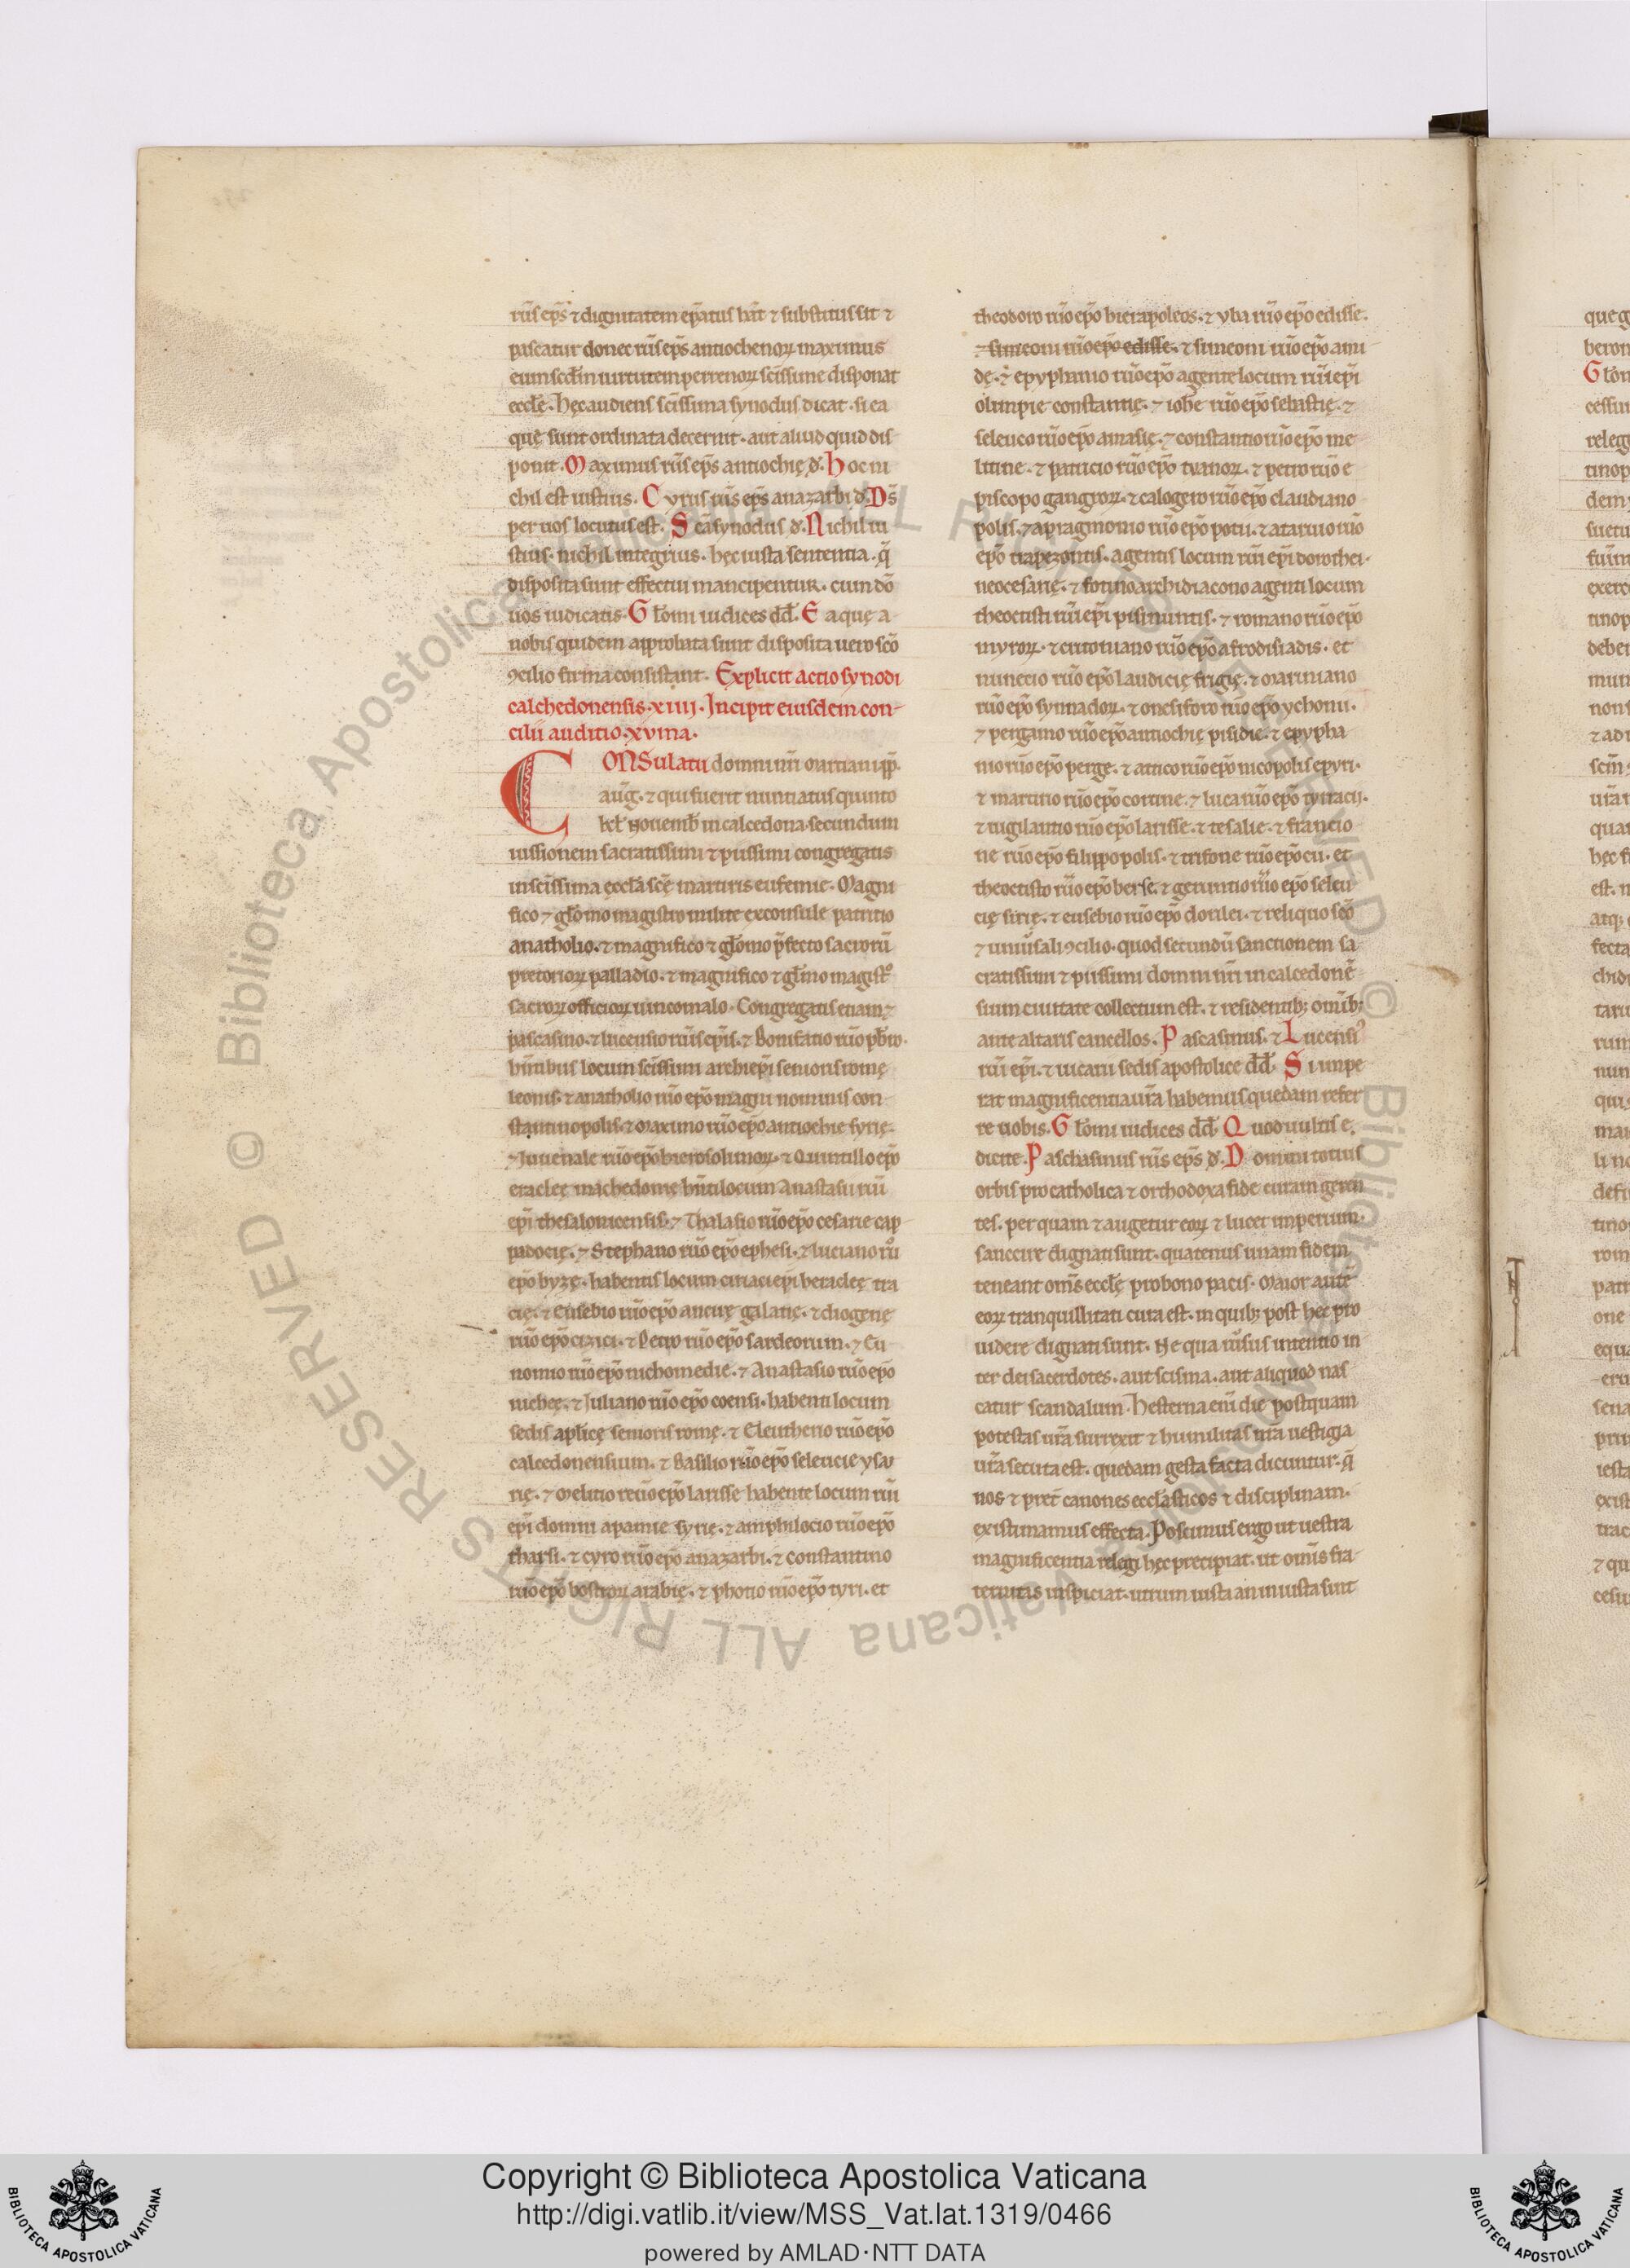 rúſ ep̃s ⁊ dignitatem ep̃atus hãt ⁊ substitus sit ⁊
pascatur donec rũs ep̃s antiochenoꝝ maximus
eum sedm̃ uirtutem perrenoꝝ sc̃issime disponat
eccl̃e. hęc audiens sc̃issima synodus dicat. si ea
quę sunt ordinata decernit. aut aliud quid dis
ponit. Maximus rũs ep̃s antiochię đ. hoc ni
chil est iustius. Cyrus rũs ep̃s anazarbi đ. Ds̃
per uos locutus est. Sc̃a synodus đ. Nichil iu
stius. nichil integrius. hęc iusta sententia. q̃
disposita sunt effectui mancipentur. cum dõ
uos iudicatis. Gl̃omi iudices dđ. Ea quę a
nobis quidem approbata sunt disposita uero sc̃o
ꝯcilio firma consistant. Explicit actio synodi
calchedonensis. xiiij. Incipit eiusdem con-
cilii auditio. xvma.
CONSulatu domini nr̃i martiani pp̃.
aug̃. ⁊ qui fuerit nuntiatus quinto
kl̃ nouemb̃ in calcedona. secundum
iussionem sacratissimi ⁊ piissimi congregatis
in sc̃issima ęccl̃a sc̃ę martiris eufemie. Magni
fico ⁊ gl̃omo magistro milite exconsule patritio
anatholio. ⁊ magnifico ⁊ gl̃omo p̃fecto sacrorũ
pretorioꝝ palladio. ⁊ magnifico ⁊ gl̃mo magist̃o
sacroꝝ officioꝝ uincomalo. Congregatis etiam ⁊
pascasino. ⁊ lucensio rũis ep̃is. ⁊ Bonifatio rũo pb̃ro.
hñtibus locum sc̃issimi archiep̃i senioris romę
leonis. ⁊ anatholio rũo ep̃o magni nominis con
stantinopolis. ⁊ maximo rũo ep̃o antiochie syrię.
⁊ Iuuenale rũo ep̃o hierosolimoꝝ. ⁊ Quintillo ep̃o
eraclee machedonię hñti locum Anastasii rũi
ep̃i thesalonicensis. ⁊ Thalasio rũo ep̃o cesarie cap
padocię. ⁊ Stephano rũo ep̃o ephesi. ⁊ luciano rũo
ep̃o byzę. habentis locum ciriaci ep̃i heracleę tra
cię. ⁊ Eusebio rũo ep̃o ancirę galatię. ⁊ diogene
rũo ep̃o cizici. ⁊ Petro rũo ep̃o sardeorum. ⁊ Eu
nomio rũo ep̃o nichomedie. ⁊ Anastasio rũo ep̃o
niceę. ⁊ Iuliano rũo ep̃o coensi. habenti locum
sedis ap̃licę senioris romę. ⁊ Eleutherio rũo ep̃o
calcedonensium. ⁊ Basilio rũo ep̃o seleucie ysau
rię. ⁊ melitio reũo ep̃o larisse habente locum rũi
ep̃i domni apamie syrię. ⁊ amphilocio rũo ep̃o
tharsi. ⁊ cyro rũo ep̃o anazarbi. ⁊ constantino
rũo ep̃o bostroꝝ arabię. ⁊ photio rũo ep̃o tyri. et
theodoro rũo ep̃o hierapoleos. ⁊ yba rũo ep̃o edisse.
⁊ simeoni rũo ep̃o edisse. ⁊ simeoni rũo ep̃o ami
dę. ⁊ epyphanio rũo ep̃o agente locum rũi ep̃i
olimpie constantię. ⁊ ioh̃e rũo ep̃o sebastię. ⁊
seleuco rũo ep̃o amasię. ⁊ constantio rũo ep̃o me
litine. ⁊ patricio rũo ep̃o tyanoꝝ. ⁊ petro rũo e
piscopo gangroꝝ. ⁊ calogero rũo ep̃o claudiano
polis. ⁊ apragmonio rũo ep̃o potu. ⁊ atarmo rũo
ep̃o trapezontis. agentis locum rũi ep̃i dorothei.
neocesarię. ⁊ fotino archidiacono agenti locum
theoctisti rũi ep̃i pisinuntis. ⁊ romano rũo ep̃o
myroꝝ. ⁊ critoniano rũo ep̃o afrodisiadis. et
nunecio rũo ep̃o laudicię frigię. ⁊ mariniano
rũo ep̃o synnadoꝝ. ⁊ onesiforo rũo ep̃o ychonii.
⁊ pergamo rũo ep̃o antiochię pisidie. ⁊ epypha
nio rũo ep̃o perge. ⁊ attico rũo ep̃o nicopolis epyri.
⁊ martirio rũo ep̃o cortine. ⁊ luca rũo ep̃o tyrracij.
⁊ uigilantio rũo ep̃o larisse. ⁊ tesalie. ⁊ francio
ne rũo ep̃o filippopolis. ⁊ trifone rũo ep̃o cii. et
theoctisto rũo ep̃o berse. ⁊ geruntio rũo ep̃o seleu
cię sirię. ⁊ eusebio rũo ep̃o dorilei. ⁊ reliquo sc̃o
⁊ uniũsali ꝯcilio. quod secundũ sanctionem sa
cratissimi ⁊ piissimi domini nr̃i in calcedonẽ
sium ciuitate collectum est. ⁊ residentib; omĩb;
ante altaris cancellos. Pascasinus. ⁊ Lucensiꝰ
rũi ep̃i. ⁊ uicarii sedis apostolice dđ. Si impe
rat magnificentia ur̃a habemus quędam refer
re uobis. Gl̃omi iudices dđ. Quod uultis e.
dicite. Paschasinus rũs ep̃s đ. Domini totius
orbis pro catholica ⁊ orthodoxa fide curam geren
tes. per quam ⁊ augetur eoꝝ ⁊ lucet imperium.
sanccire dignati sunt. quatenus unam fidem
teneant om̃s eccl̃ę pro bono pacis. Maior autẽ
eoꝝ tranquillitati cura est. in quib; post hęc pro
uidere dignati sunt. Ne qua rũsus intentio in
ter dei sacerdotes. aut scisma. aut aliquod nas
catur scandalum. hesterna eni̅ die postquam
potestas ur̃a surrexit ⁊ humilitas nr̃a uestigia
ur̃a secuta est. quędam gesta facta dicuntur. q̃
nos ⁊ preť canones eccl̃asticos ⁊ disciplinam.
existimamus effecta. Poscimus ergo ut uestra
magnificentia relegi hęc precipiat. ut om̃is fra
ternitas inspiciat. utrum iusta an iniusta sint
Copyright © Biblioteca Apostolica Vaticana
http://digi.vatlib.it/view/MSS_Vat.lat.1319/0466
powered by AMLAD·NTT DATA